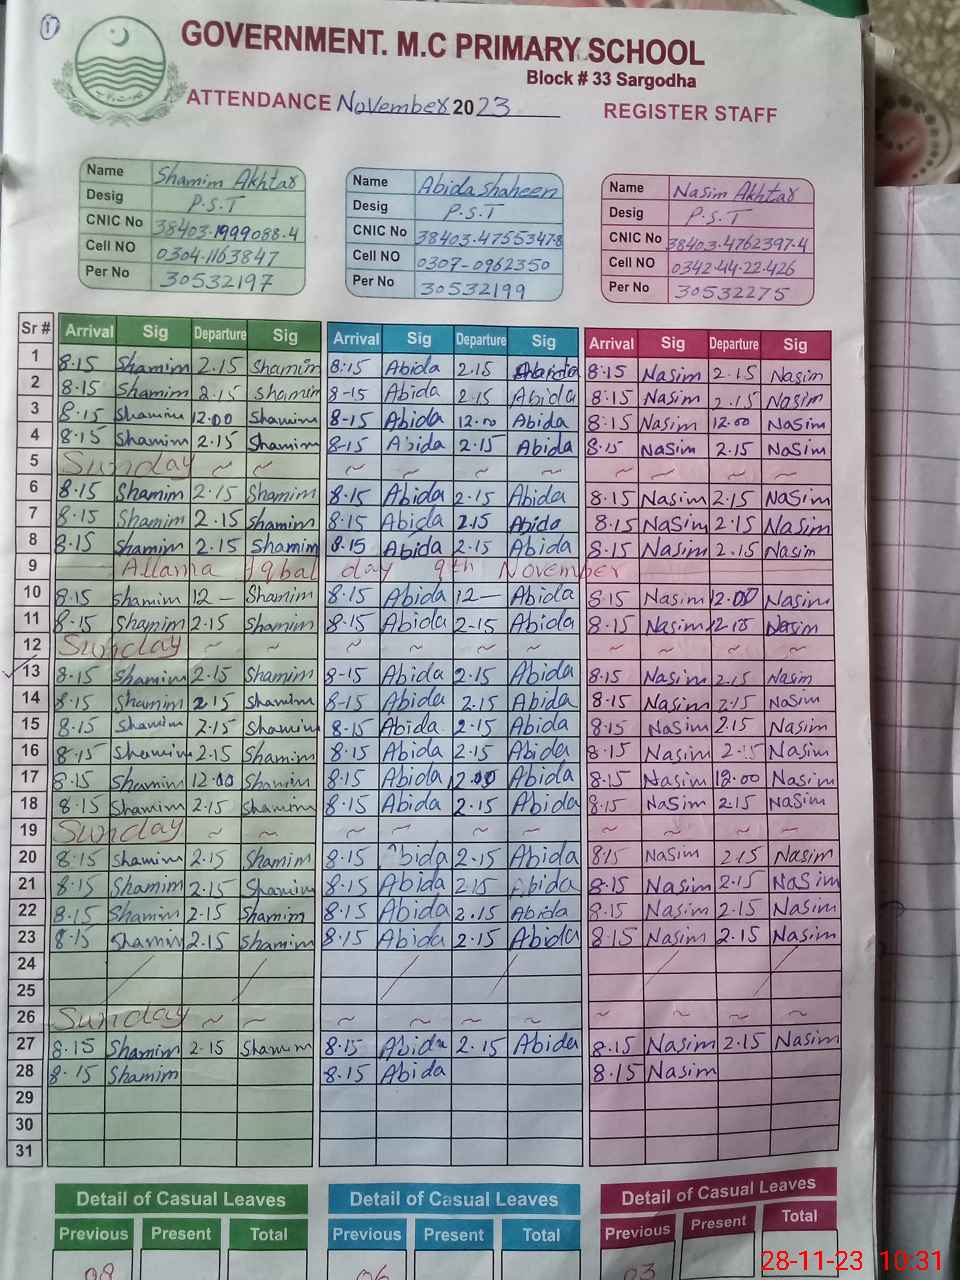 1
GOVERNMENT. M.C PRIMARY SCHOOL
Block # 33 Sargodha
ATTENDANCE November 2023 REGISTER STAFF
Name Shamim Akhtar Name Abida Shaheen Name Nasim Akhtar
Desig P.S.T Desig P.S.T Desig P.S.T
CNIC No 38403.1999088.4 CNIC No 38403.4755347-8 CNIC No 38403.4762397-4
Cell NO 0304.1163847 Cell NO 0307-0962350 Cell NO 0342-44-22-426
Per No 30532197 Per No 30532199 Per No 30532275
Sr # Arrival Sig Departure Sig Arrival Sig Departure Sig Arrival Sig Departure Sig
1 8.15 Shamim 2.15 Shamim 8.15 Abida 2.15 Abida 8.15 Nasim 2.15 Nasim
2 8.15 Shamim 2.15 Shamim 8-15 Abida 2.15 Abida 8.15 Nasim 2.15 Nasim
3 8.15 Shamim 12.00 Shamim 8-15 Abida 12.00 Abida 8.15 Nasim 12.00 Nasim
4 8.15 Shamim 2.15 Shamim 8-15 Abida 2.15 Abida 8.15 Nasim 2.15 Nasim
5 Sunday ~ ~ ~ ~ ~ ~ ~ ~ ~
6 8.15 Shamim 2.15 Shamim 8.15 Abida 2.15 Abida 8.15 Nasim 2.15 Nasim
7 8.15 Shamim 2.15 Shamim 8.15 Abida 2.15 Abida 8.15 Nasim 2.15 Nasim
8 8.15 Shamim 2.15 Shamim 8.15 Abida 2.15 Abida 8.15 Nasim 2.15 Nasim
9 Allama Iqbal day 9th November
10 8.15 Shamim 12 — Shamim 8.15 Abida 12 — Abida 8.15 Nasim 12.00 Nasim
11 8.15 Shamim 2.15 Shamim 8.15 Abida 2-15 Abida 8.15 Nasim Nasim
12 Sunday ~ ~ ~ ~ ~ ~ ~ ~ ~ ~
13 8.15 Shamim 2.15 Shamim 8-15 Abida 2.15 Abida 8.15 Nasim 2.15 Nasim
14 8.15 Shamim 2.15 Shamim 8-15 Abida 2.15 Abida 8.15 Nasim 2.15 Nasim
15 8.15 Shamim 2.15 Shamim 8.15 Abida 2.15 Abida 8.15 Nasim 2.15 Nasim
16 8.15 Shamim 2.15 Shamim 8.15 Abida 2.15 Abida 8.15 Nasim 2.15 Nasim
17 8.15 Shamim 12.00 Shamim 8.15 Abida 12.00 Abida 8.15 Nasim 18.00 Nasim
18 8.15 Shamim 2.15 Shamim 8.15 Abida 2.15 Abida 8.15 Nasim 2.15 Nasim
19 Sunday ~ ~ ~ ~ ~ ~ ~ ~ ~ ~
20 8.15 Shamim 2.15 Shamim 8.15 Abida 2.15 Abida 8.15 Nasim 2.15 Nasim
21 8.15 Shamim 2.15 Shamim 8.15 Abida 2.15 Abida 8.15 Nasim 2.15 Nasim
22 8.15 Shamim 2.15 Shamim 8.15 Abida 2.15 Abida 8.15 Nasim 2.15 Nasim
23 8.15 Shamim 2.15 Shamim 8.15 Abida 2.15 Abida 8.15 Nasim 2.15 Nasim
24
25
26 Sunday ~ ~ ~ ~ ~ ~ ~ ~ ~ ~
27 8.15 Shamim 2.15 Shamim 8.15 Abida 2.15 Abida 8.15 Nasim 2.15 Nasim
28 8.15 Shamim 8.15 Abida 8.15 Nasim
29
30
31
Detail of Casual Leaves Detail of Casual Leaves Detail of Casual Leaves
Previous Present Total Previous Present Total Previous Present Total
08 06 03
28-11-23 10:31